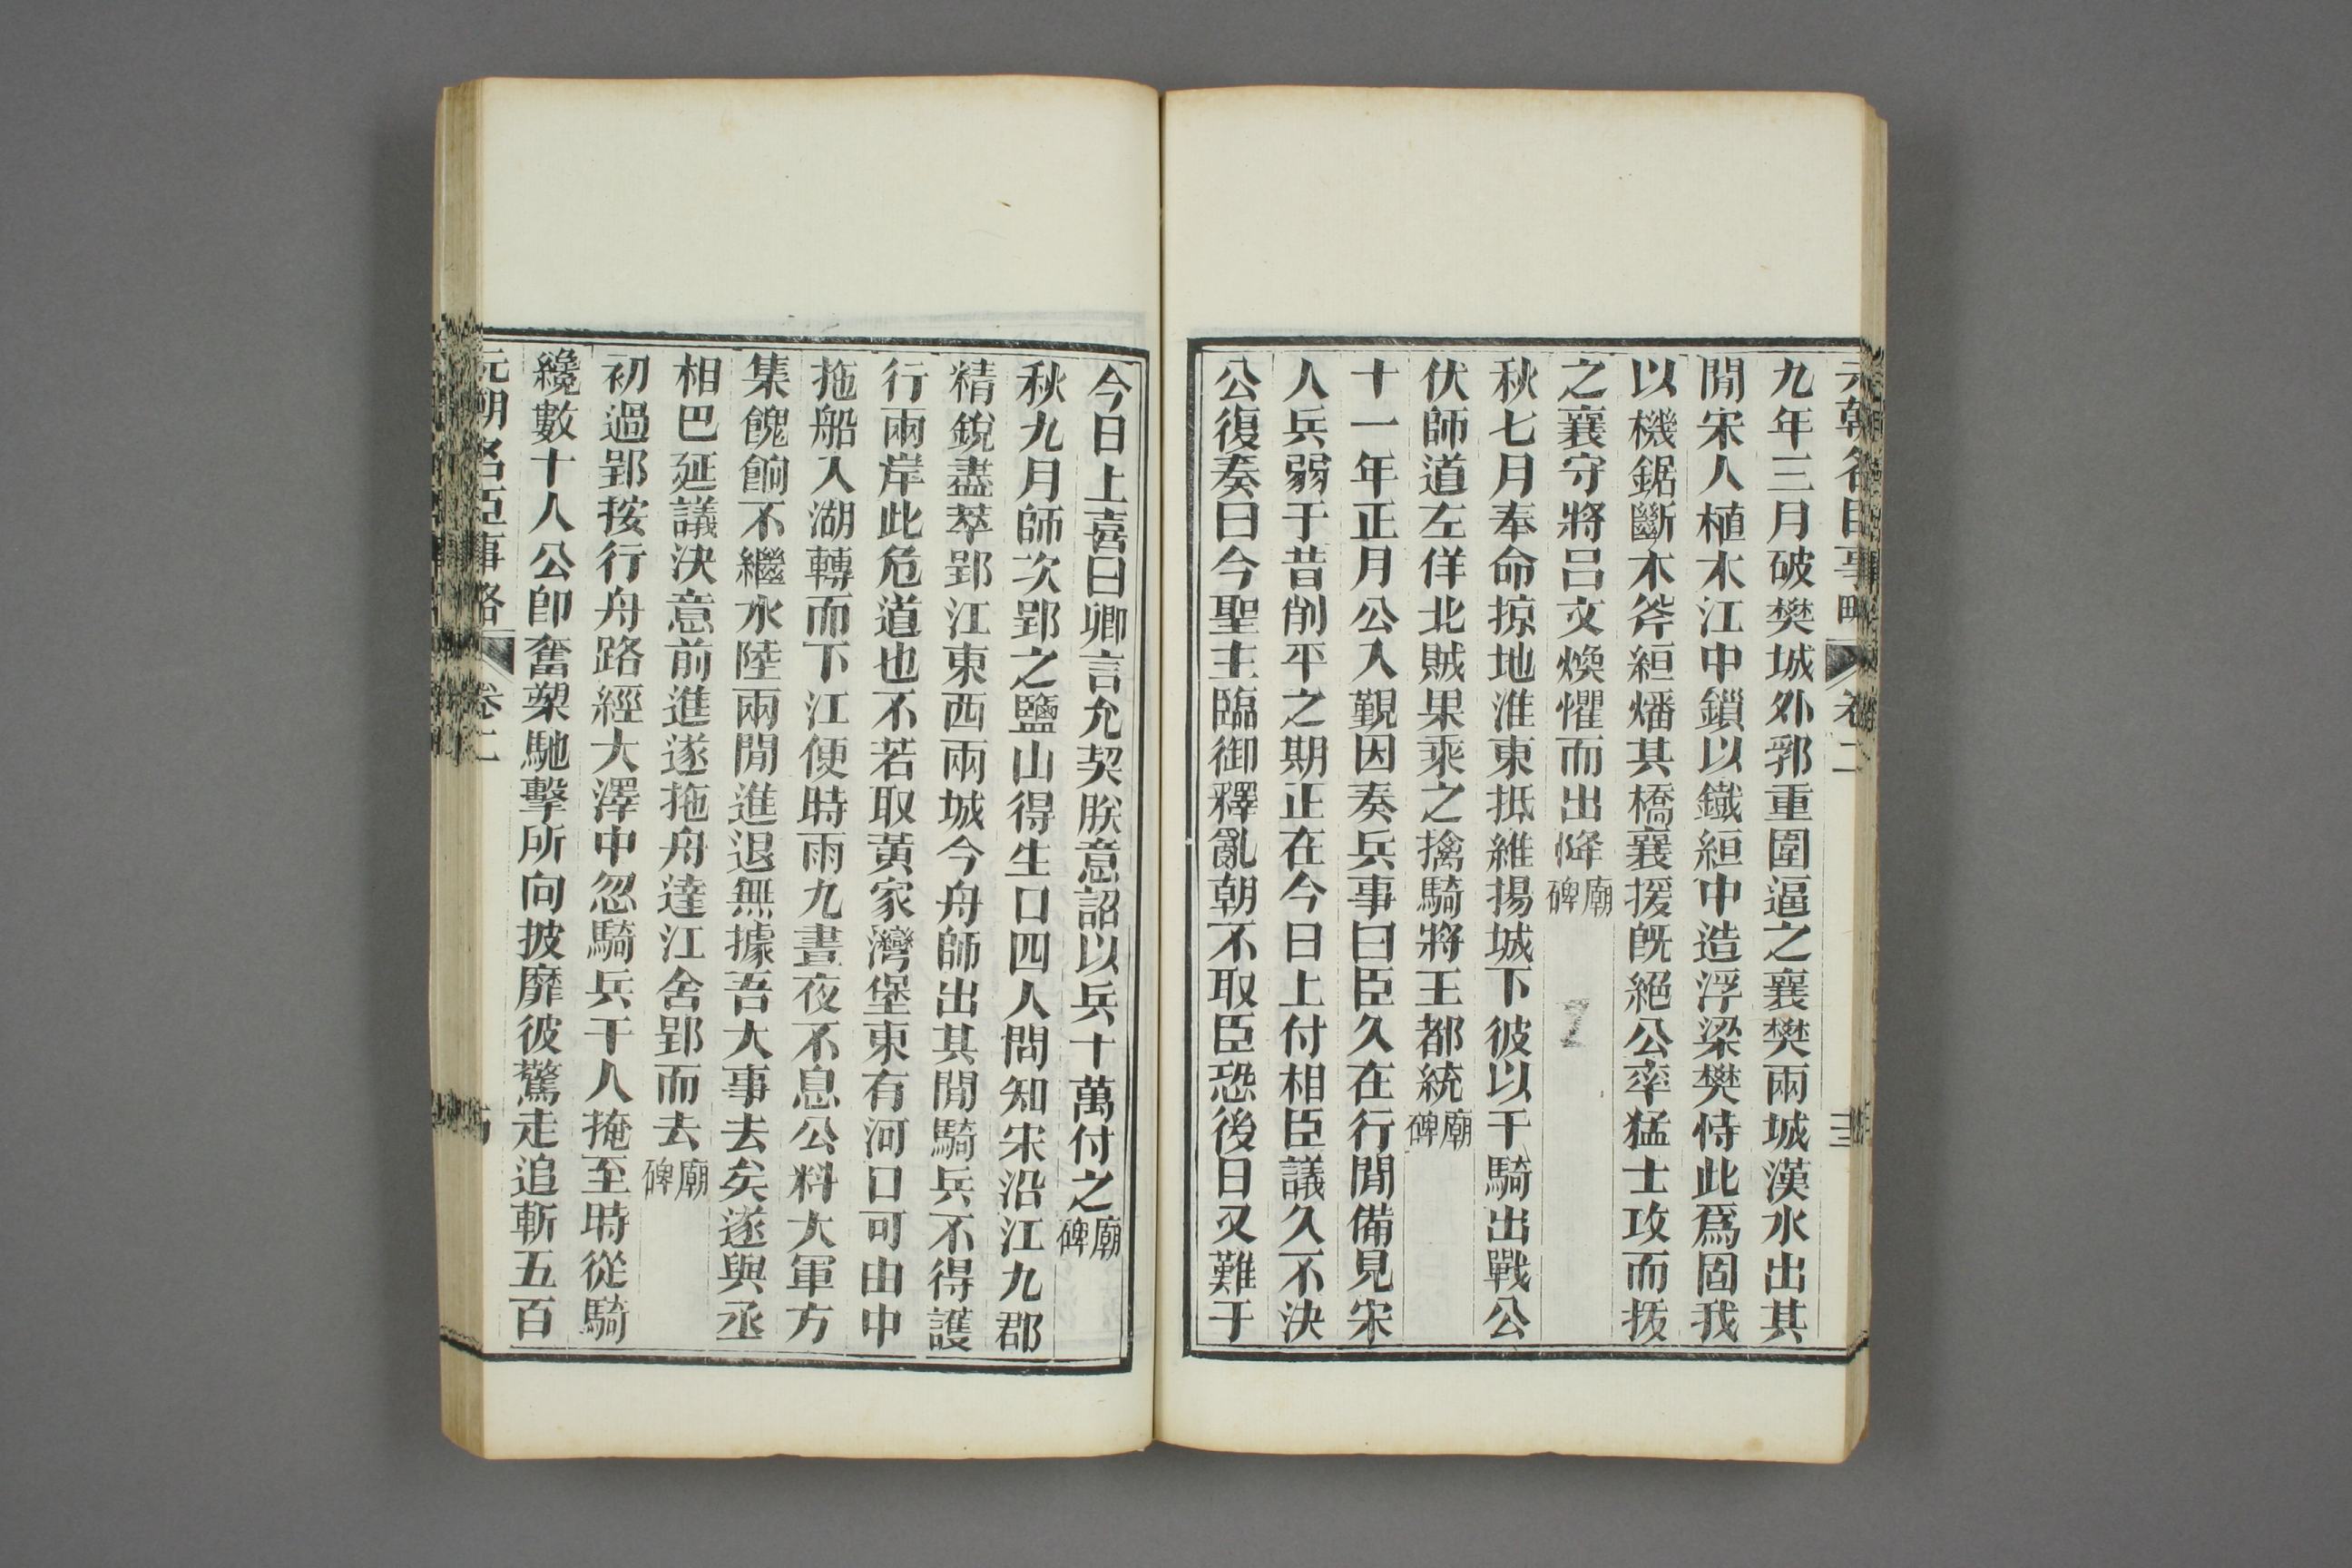 元朝名臣事略 卷二 十三
九年三月破樊城外郛重圍逼之襄樊兩城漢水出其
閒宋人植木江中鎖以鐵絙中造浮梁樊恃此爲固我
以機鋸斷木斧絙燔其橋襄援旣絕公率猛士攻而拔
之襄守將呂文煥懼而出降廟碑
秋七月奉命掠地淮東抵維揚城下彼以千騎出戰公
伏師道左佯北賊果乘之擒騎將王都統廟碑
十一年正月公入覲因奏兵事曰臣久在行閒備見宋
人兵弱于昔削平之期正在今日上付相臣議久不決
公復奏曰今聖主臨御釋亂朝不取臣恐後日又難于
今日上喜曰卿言允契朕意詔以兵十萬付之廟碑
秋九月師次郢之鹽山得生口四人問知宋沿江九郡
精銳盡萃郢江東西兩城今舟師出其閒騎兵不得護
行兩岸此危道也不若取黃家灣堡東有河口可由中
拖船入湖轉而下江便時雨九晝夜不息公料大軍方
集餽餉不繼水陸兩閒進退無據吾大事去矣遂與丞
相巴延議決意前進遂拖舟達江舍郢而去廟碑
初過郢按行舟路經大澤中忽騎兵千人掩至時從騎
纔數十人公卽奮槊馳擊所向披靡彼驚走追斬五百
元朝名臣事略 卷二